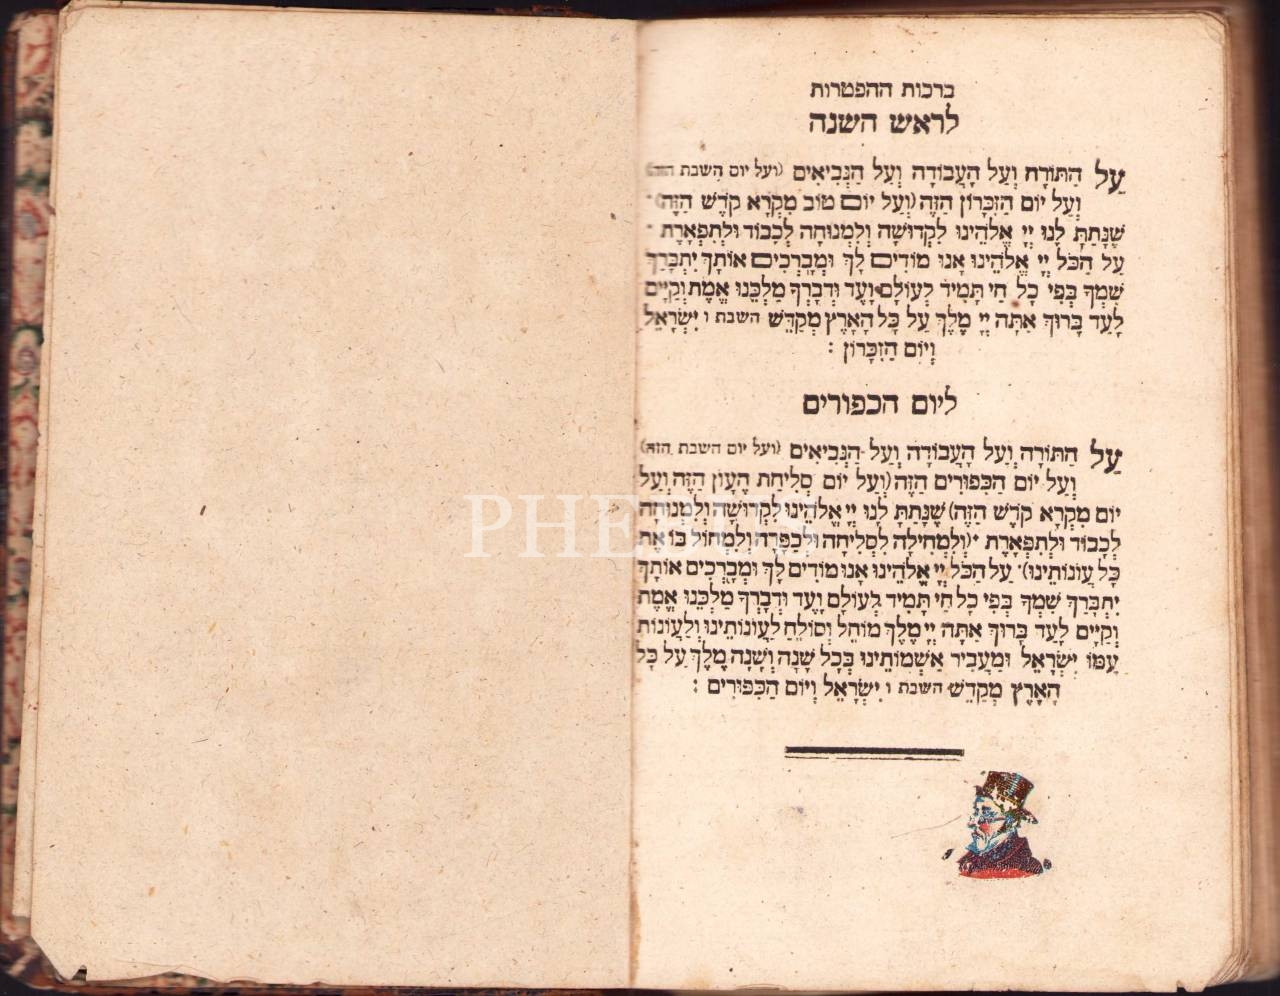 ברכות ההפטרות
לראש השנה
עַל הַתּוֹרָה וְעַל הָעֲבוֹדָה וְעַל הַנְּבִיאִים (ועל יום השבת הזה)
וְעַל יוֹם הַזִּכָּרוֹן הַזֶּה (וְעַל יוֹם טוֹב מִקְרָא קֹדֶשׁ הַזֶּה) ·
שֶׁנָּתַתָּ לָנוּ יְיָ אֱלֹהֵינוּ לִקְדוּשָׁה וְלִמְנוּחָה לְכָבוֹד וּלְתִפְאָרֶת ·
עַל הַכֹּל יְיָ אֱלֹהֵינוּ אָנוּ מוֹדִים לָךְ וּמְבָרְכִים אוֹתָךְ יִתְבָּרַךְ
שִׁמְךָ בְּפִי כָל חַי תָּמִיד לְעוֹלָם וָעֶד וּדְבָרְךָ מַלְכֵּנוּ אֱמֶת וְקַיָּים
לָעַד בָּרוּךְ אַתָּה יְיָ מֶלֶךְ עַל כָּל הָאָרֶץ מְקַדֵּשׁ השבת ו יִשְׂרָאֵל
וְיוֹם הַזִּכָּרוֹן :
ליום הכפורים
עַל הַתּוֹרָה וְעַל הָעֲבוֹדָה וְעַל הַנְּבִיאִים (ועל יום השבת הזה)
וְעַל יוֹם הַכִּפּוּרִים הַזֶּה (וְעַל יוֹם סְלִיחַת הֶעָוֹן הַזֶּה וְעַל
יוֹם מִקְרָא קֹדֶשׁ הַזֶּה) שֶׁנָּתַתָּ לָנוּ יְיָ אֱלֹהֵינוּ לִקְדוּשָׁה וְלִמְנוּחָה
לְכָבוֹד וּלְתִפְאָרֶת · (וְלִמְחִילָה לִסְלִיחָה וּלְכַפָּרָה וְלִמְחוֹל בּוֹ אֶת
כָּל עֲוֹנוֹתֵינוּ) · עַל הַכֹּל יְיָ אֱלֹהֵינוּ אָנוּ מוֹדִים לָךְ וּמְבָרְכִים אוֹתָךְ
יִתְבָּרַךְ שִׁמְךָ בְּפִי כָל חַי תָּמִיד לְעוֹלָם וָעֶד וּדְבָרְךָ מַלְכֵּנוּ אֱמֶת
וְקַיָּים לָעַד בָּרוּךְ אַתָּה יְיָ מֶלֶךְ מוֹחֵל וְסוֹלֵחַ לַעֲוֹנוֹתֵינוּ וְלַעֲוֹנוֹת
עַמּוֹ יִשְׂרָאֵל וּמַעֲבִיר אַשְׁמוֹתֵינוּ בְּכָל שָׁנָה וְשָׁנָה מֶלֶךְ עַל כָּל
הָאָרֶץ מְקַדֵּשׁ השבת ו יִשְׂרָאֵל וְיוֹם הַכִּפּוּרִים :
PHEBUS